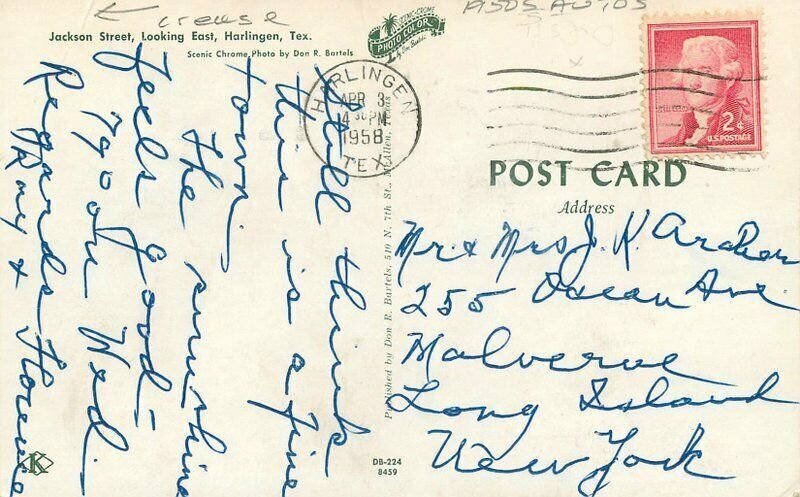 ← crease
1950S AUTOS
Jackson Street, Looking East, Harlingen, Tex.
Scenic Chrome Photo by Don R. Bartels
SCENIC-CHROME
PHOTO COLOR
by Don Bartels
HARLINGEN
APR 3
4 30 PM
1958
TEX.
2¢
U.S. POSTAGE
POST CARD
Address
Still think
this is a fine
town.
The sunshine
feels good =
79° on Wed.
Regards
Ray & Florence
Published by Don R. Bartels, 510 N. 7th St., McAllen, Texas
Mr & Mrs J. K. Archer
255 Ocean Ave.
Malverne
Long Island
New York
K
DB-224
8459